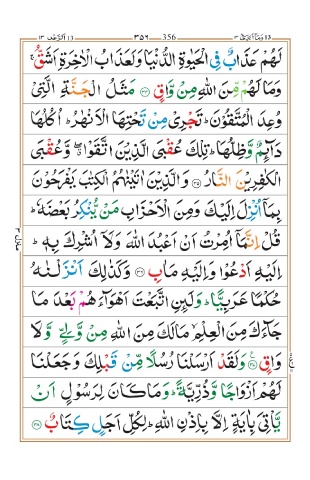 ١٣ اَلرَّعْد ١٣ ٣٥٦ 356 وَمَآ اُبَرِّئُ ١٣
لَهُمْ عَذَابٌ فِي الْحَيٰوةِ الدُّنْيَا وَلَعَذَابُ الْاٰخِرَةِ اَشَقُّ ۚ
وَمَا لَهُمْ مِّنَ اللّٰهِ مِنْ وَّاقٍ ﴿٣٤﴾ مَثَلُ الْجَنَّةِ الَّتِيْ
وُعِدَ الْمُتَّقُوْنَ ؕ تَجْرِيْ مِنْ تَحْتِهَا الْاَنْهٰرُ ؕ اُكُلُهَا
دَآئِمٌ وَّظِلُّهَا ؕ تِلْكَ عُقْبَى الَّذِيْنَ اتَّقَوْا ۖۗ وَّعُقْبَى
الْكٰفِرِيْنَ النَّارُ ﴿٣٥﴾ وَالَّذِيْنَ اٰتَيْنٰهُمُ الْكِتٰبَ يَفْرَحُوْنَ
بِمَآ اُنْزِلَ اِلَيْكَ وَمِنَ الْاَحْزَابِ مَنْ يُّنْكِرُ بَعْضَهٗ ؕ
قُلْ اِنَّمَآ اُمِرْتُ اَنْ اَعْبُدَ اللّٰهَ وَلَآ اُشْرِكَ بِهٖ ؕ
اِلَيْهِ اَدْعُوْا وَاِلَيْهِ مَاٰبِ ﴿٣٦﴾ وَكَذٰلِكَ اَنْزَلْنٰهُ
حُكْمًا عَرَبِيًّا ؕ وَلَئِنِ اتَّبَعْتَ اَهْوَآءَهُمْ بَعْدَ مَا
جَآءَكَ مِنَ الْعِلْمِ ۙ مَا لَكَ مِنَ اللّٰهِ مِنْ وَّلِيٍّ وَّلَا
وَاقٍ ﴿٣٧﴾ وَلَقَدْ اَرْسَلْنَا رُسُلًا مِّنْ قَبْلِكَ وَجَعَلْنَا
لَهُمْ اَزْوَاجًا وَّذُرِّيَّةً ؕ وَمَا كَانَ لِرَسُوْلٍ اَنْ
يَّاْتِيَ بِاٰيَةٍ اِلَّا بِاِذْنِ اللّٰهِ ؕ لِكُلِّ اَجَلٍ كِتَابٌ ﴿٣٨﴾
منزل ٣